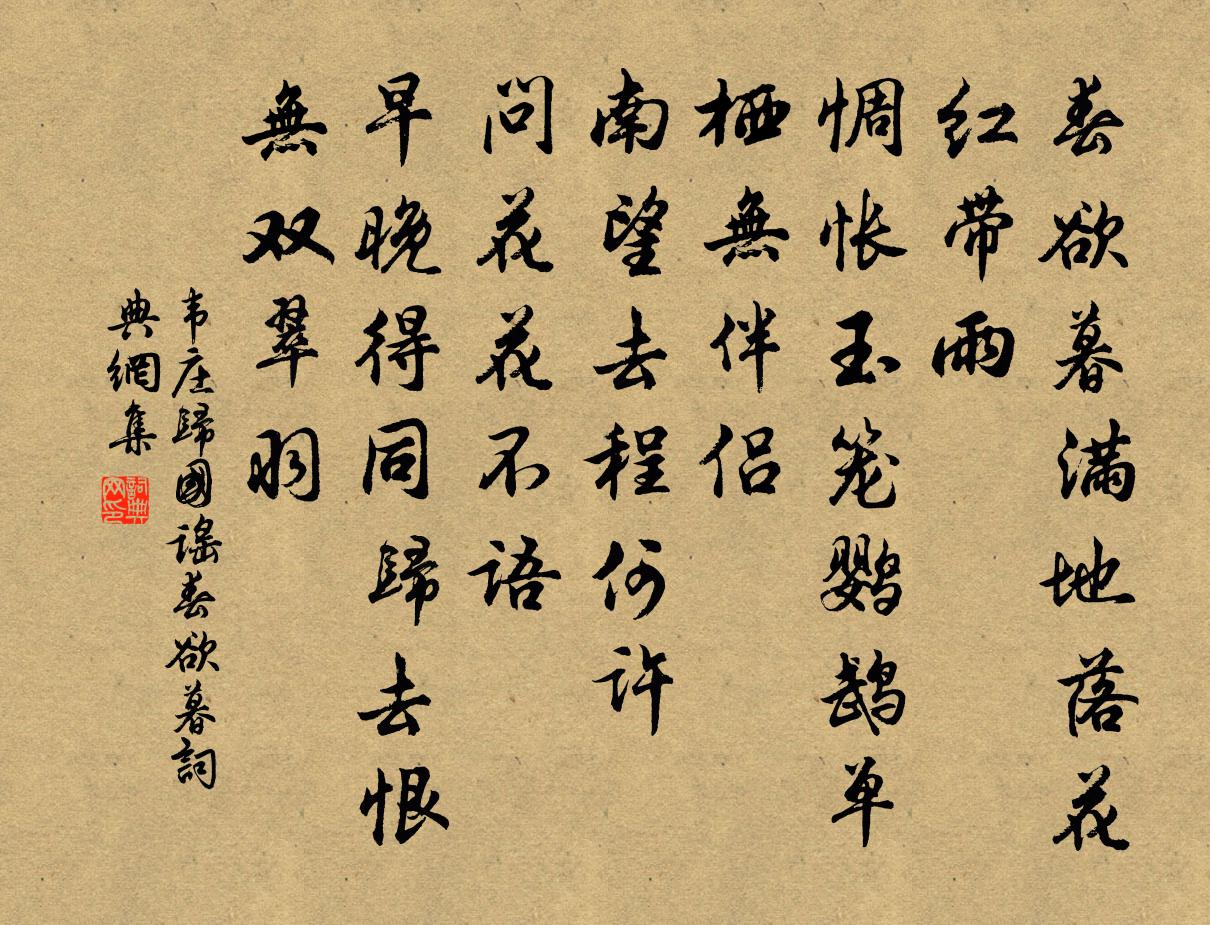 春欲暮满地落花
红带雨
惆怅玉笼鹦鹉单
栖無伴侣
南望去程何许
问花花不语
早晚得同歸去恨
無双翠羽
韦庄歸國謠春欲暮詞
典網集
詞典
网印